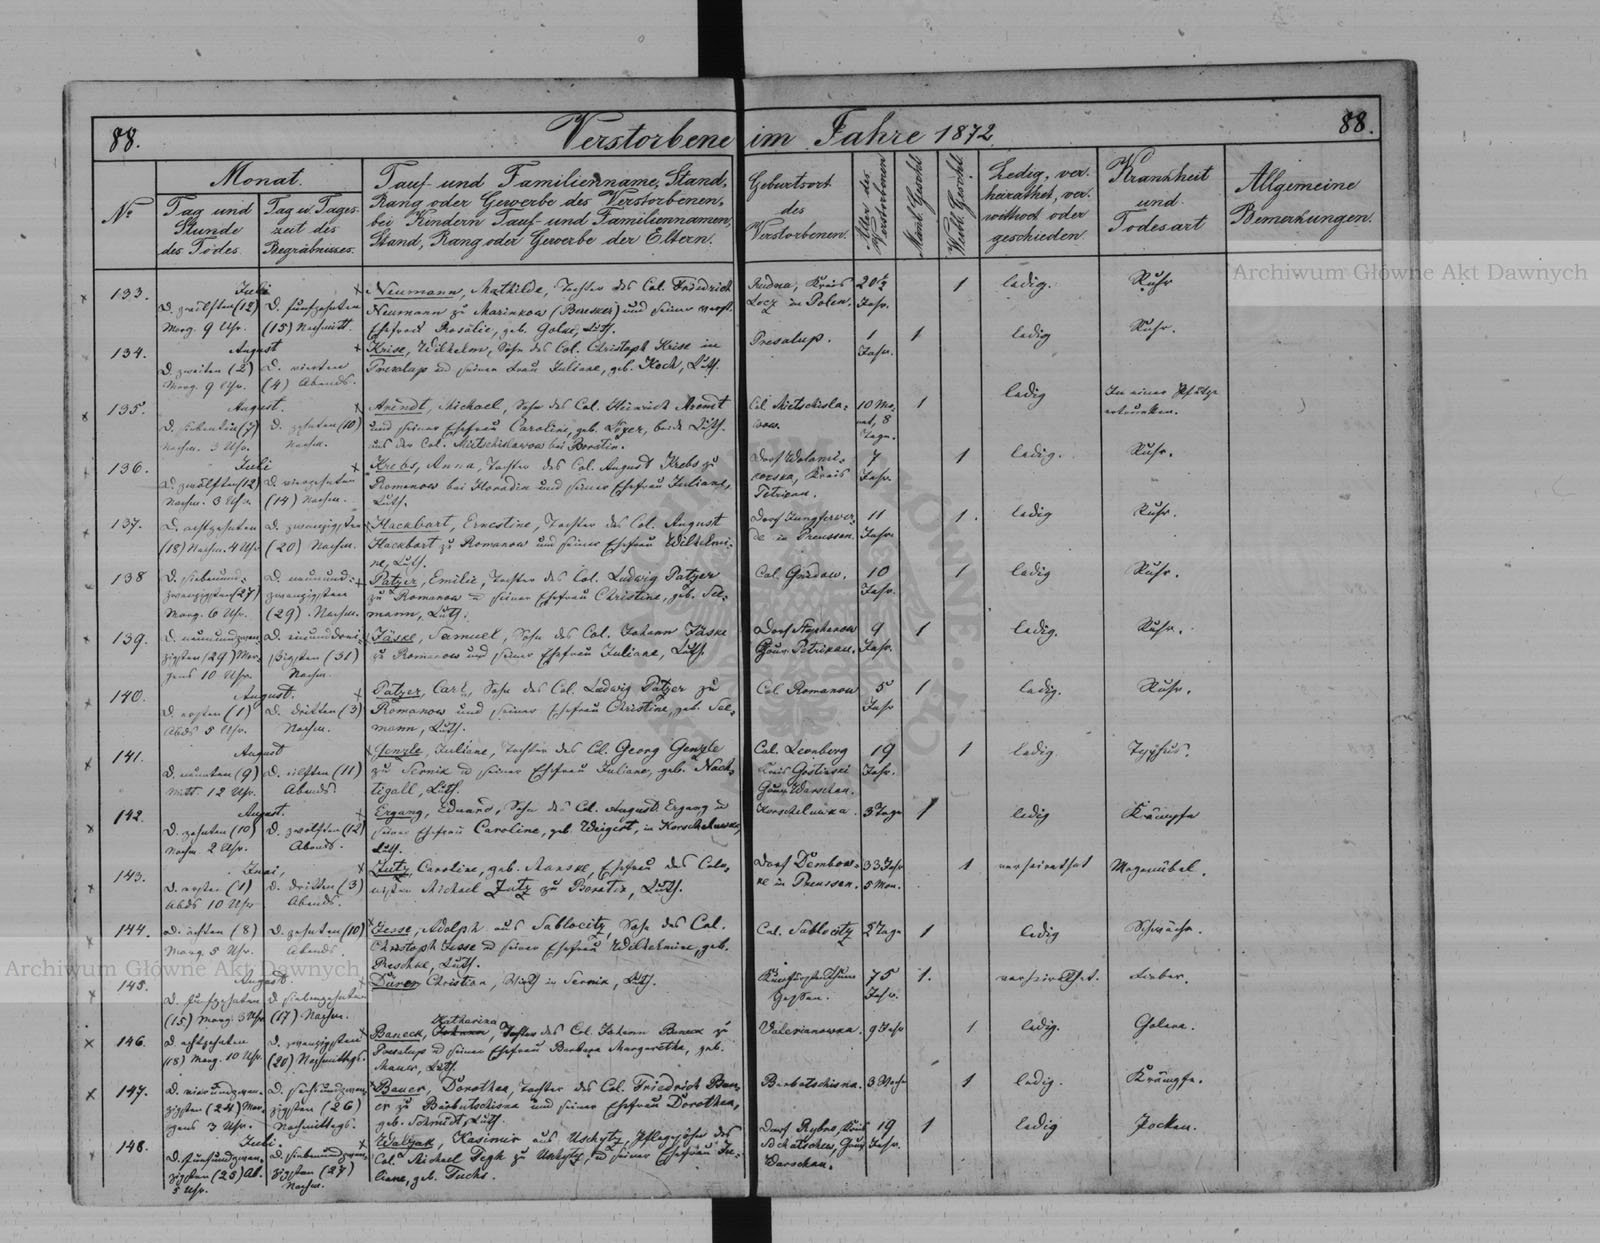 88.
Verstorbene im Jahre 1872
88.
№
Monat.
Tag und Stunde des Todes.
Tag u. Tages-
zeit des
Begräbnisses.
Tauf- und Familienname, Stand,
Rang oder Gewerbe des Verstorbenen,
bei Kindern Tauf- und Familiennamen,
Stand, Rang oder Gewerbe der Eltern.
Geburtsort
des
Verstorbenen.
Alter des
Verstorbenen
Männl. Geschl.
Weibl. Geschl.
Ledig, ver-
heirathet, ver-
wittwet oder
geschieden
Krankheit
und
Todesart
Allgemeine
Bemerkungen.
Archiwum Główne Akt Dawnych
133.
Juli
D. zwölften (12)
Morg. 9 Uhr.
D. fünfzehnten
(15) Nachmitt.
Neumann, Mathilde, Tochter des Col. Friedrich
Neumann zu Marinkow (Beresker) und seiner verst.
Ehefrau Rosalie, geb. Golke, Luth.
Rudna, Kreis
Locz in Polen.
20½
Jahr.
1
ledig.
Ruhr
134.
August
D. zweiten (2)
Morg. 9 Uhr.
D. vierten
(4) Abends.
Krise, Wilhelm, Sohn des Col. Christoph Krise in
Presalup u seiner Frau Juliane, geb. Koch, Luth.
Presalup.
1
Jahr.
1
ledig
Ruhr.
135.
August.
D. siebenten (7)
Nachm. 3 Uhr.
D. zehnten (10)
Nachm.
Arendt, Michael, Sohn des Col. Heinrich Arendt
und seiner Ehefrau Caroline, geb. Loyer, beide Luth.
aus der Col. Mietschislawow bei Boratin.
Col. Mietschisla-
wow.
10 Mo-
nat, 8
Tage.
1
ledig
In einer Pfütze
ertrunken.
136.
Juli
D. zwölften (12)
Nachm. 3 Uhr
D. vierzehnten
(14) Nachm.
Krebs, Anna, Tochter des Col. August Krebs zu
Romanow bei Horadin und seiner Ehefrau Juliane,
Luth.
Kreis
Petrikau.
7
Jahr.
1
ledig.
Ruhr.
137.
D. achtzehnten
(18) Nachm. 4 Uhr
D. zwanzigsten
(20) Nachm.
Hackbart, Ernestine, Tochter des Col. August
Hackbart zu Romanow und seiner Ehefrau Wilhelmi-
ne, Luth.
Dorf Jungferver-
de in Preussen.
11
Jahr.
1.
ledig
Ruhr.
138
D. siebenund-
zwanzigsten (27)
Morg. 6 Uhr.
D. neunund-
zwanzigsten
(29). Nachm.
Patzer, Emilie, Tochter des Col. Ludwig Patzer
zu Romanow u seiner Ehefrau Christine, geb. Sel-
mann, Luth.
10
Jahr.
1
ledig
Ruhr.
139.
D. neunundzwan-
zigsten (29) Mor-
gens 10 Uhr.
D. einunddrei-
ßigsten (31)
Nachm.
Jäske, Samuel, Sohn des Col. Johann Jäske
zu Romanow und seiner Ehefrau Juliane, Luth.
Dorf Stephanow
Gouv. Petrikau.
9
Jahr.
1
ledig.
Ruhr.
140.
August.
D. ersten (1)
Abds 5 Uhr.
D. dritten (3)
Nachm.
Patzer, Carl, Sohn des Col. Ludwig Patzer zu
Romanow und seiner Ehefrau Christine, geb. Sel-
mann, Luth.
Col. Romanow
5
Jahr
1
ledig.
Ruhr.
141.
August
D. neunten (9)
Mitt. 12 Uhr.
D. eilften (11)
Abends.
Genzle, Juliane, Tochter des Col. Georg Genzle
zu Sernik u seiner Ehefrau Juliane, geb. Nach-
tigall, Luth.
Col. Leonberg
Kreis Gostinski
Gouv. Warschau.
19
Jahr.
1
ledig.
Typhus.
142.
August.
D. zehnten (10)
Nachm. 2 Uhr.
D. zwölften (12)
Abends.
Ergang, Eduard, Sohn des Col. August Ergang u
seiner Ehefrau Caroline, geb. Weigert, in Korschelewka,
Luth.
3 Tage
1
ledig
Krämpfe
143.
Juni,
D. ersten (1)
Abds 10 Uhr
D. dritten (3)
Abends.
Zutz, Caroline, geb. Manske, Ehefrau des Colo-
nisten Michael Zutz zu Boratin, Luth.
Dorf Dembow-
ke in Preussen.
33 Jahr
5 Mon.
1
verheirathet
Magenübel.
144.
D. achten (8)
Morg. 5 Uhr.
D. zehnten (10)
Abends.
Jesse, Adolph aus Sablocitz, Sohn des Col.
Christoph Jesse u seiner Ehefrau Wilhelmine, geb.
Preschke, Luth.
Col. Sablocitz
2 Tage
1
ledig
Schwäche.
Archiwum Główne Akt Dawnych
145.
August.
D. fünfzehnten
(15) Morg. 3 Uhr
D. siebenzehnten
(17) Nachm.
Dürer, Christian, Wirth in Sernik, Luth.
Kurfürstenthum
Hessen.
75
Jahr.
1.
verheirathet.
Fieber.
146.
D. achtzehnten
(18) Morg. 10 Uhr.
D. zwanzigsten
(20) Nachmittags.
Katharina
Baneck, Johann, Tochter des Col. Johann Baneck zu
Presalup u seiner Ehefrau Barbara Margaretha, geb.
Mauer, Luth.
Valerianowka.
9 Jahr
1
ledig.
147.
D. vierundzwan-
zigsten (24) Mor-
gens 3 Uhr.
D. sechsundzwan-
zigsten (26)
Nachmittags.
Bauer, Dorothea, Tochter des Col. Friedrich Bau-
er zu Barbutschisna und seiner Ehefrau Dorothea,
geb. Schmidt, Luth.
Barbutschisna.
3 Woch
1
ledig.
Krämpfe.
148.
Juli.
D. fünfundzwan-
zigsten (25) Ab.
5 Uhr.
D. siebenundzwan-
zigsten (27)
Nachm.
Walzak, Kasimir aus Uschytz, Pflegesohn des
Col. Michael Fegh zu Uschytz, u seiner Ehefrau Ju-
liane, geb. Fuchs.
Dorf Rybno, Kreis
Sochatschew, Gouv
Warschau.
19
Jahr.
1
ledig
Pocken.